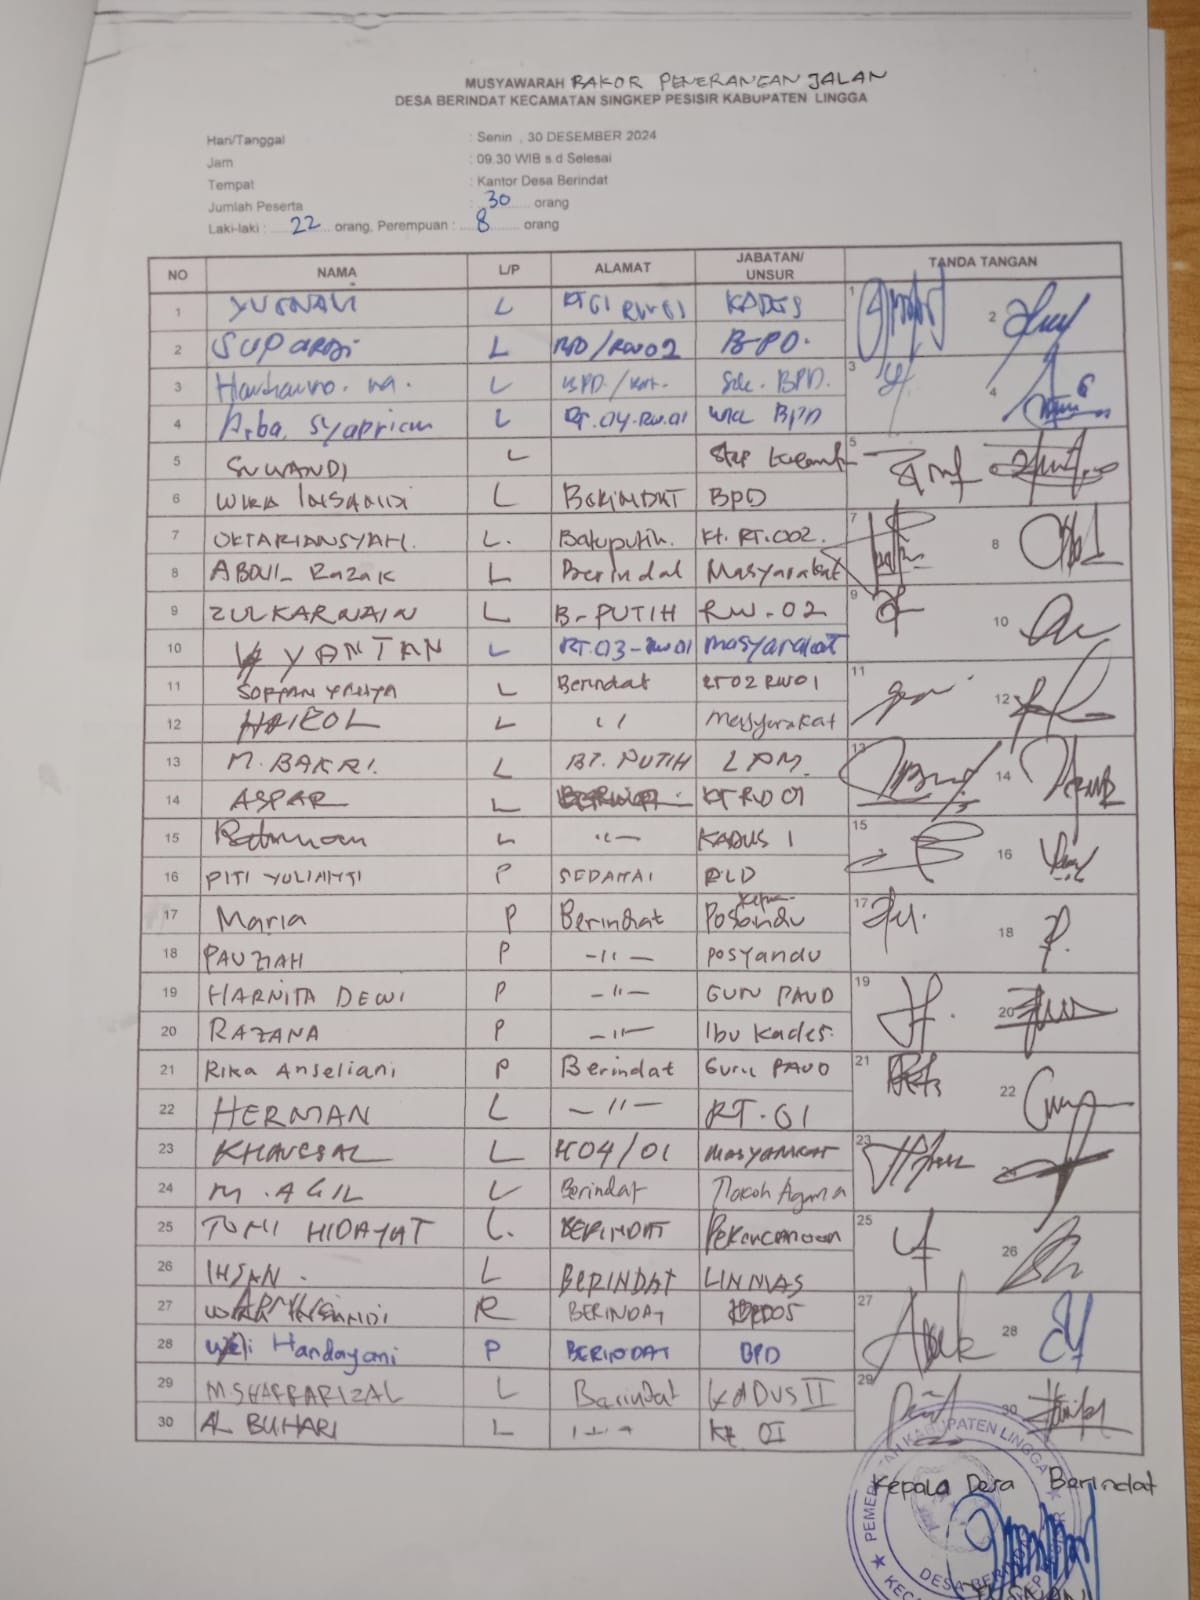 MUSYAWARAH RAKOR PENERANGAN JALAN
DESA BERINDAT KECAMATAN SINGKEP PESISIR KABUPATEN LINGGA
Hari/Tanggal : Senin , 30 DESEMBER 2024
Jam : 09.30 WIB s.d Selesai
Tempat : Kantor Desa Berindat
Jumlah Peserta : 30 orang
Laki-laki : 22 orang, Perempuan : 8 orang
NO NAMA L/P ALAMAT JABATAN/UNSUR TANDA TANGAN
1 YUSNAN L RT01 RW01 KADES 1
2 SUPARDI L /RW02 BPD. 2
3 L BPD. 3
4 Arba. Syaprian L RT.04.RW.01 BPD 4
5 SUWANDI L 5
6 WIRA INSANDI L BERINDAT BPD 6
7 OKTARIANSYAH. L. Batuputih. Kt. RT.002. 7
8 ABDUL Razak L Berindat Masyarakat 8
9 ZULKARNAIN L B-PUTIH RW-02 9
10 YANTAN L RT.03-RW01 masyarakat 10
11 SOFYAN YAHYA L Berindat RT02 RW01 11
12 HAIROL L " masyarakat 12
13 M. BAKRI. L BT. PUTIH LPM. 13
14 ASPAR L 14
15 L -"- KADUS 1 15
16 PITI YULIANTI P SEDAMAI PLD 16
17 Maria P Berindat Ketua Posyandu 17
18 PAUZIAH P -"- posyandu 18
19 HARNITA DEWI P -"- GURU PAUD 19
20 RAZANA P -"- Ibu Kades. 20
21 Rika Anseliani P Berindat Guru PAUD 21
22 HERMAN L -"- RT.01 22
23 L 04/01 MASYARAKAT 23
24 M. AGIL L Berindat Tokoh Agama 24
25 TOMI HIDAYAT L. BERINDAT 25
26 IHSAN. L BERINDAT LINMAS 26
27 BERINDAT 27
28 Handayani P BERINDAT BPD 28
29 L Berindat KADUS II 29
30 AL BUHARI L 30
Kepala Desa Berindat
PEMERINTAH KABUPATEN LINGGA
DESA BERINDAT
YUSNAN